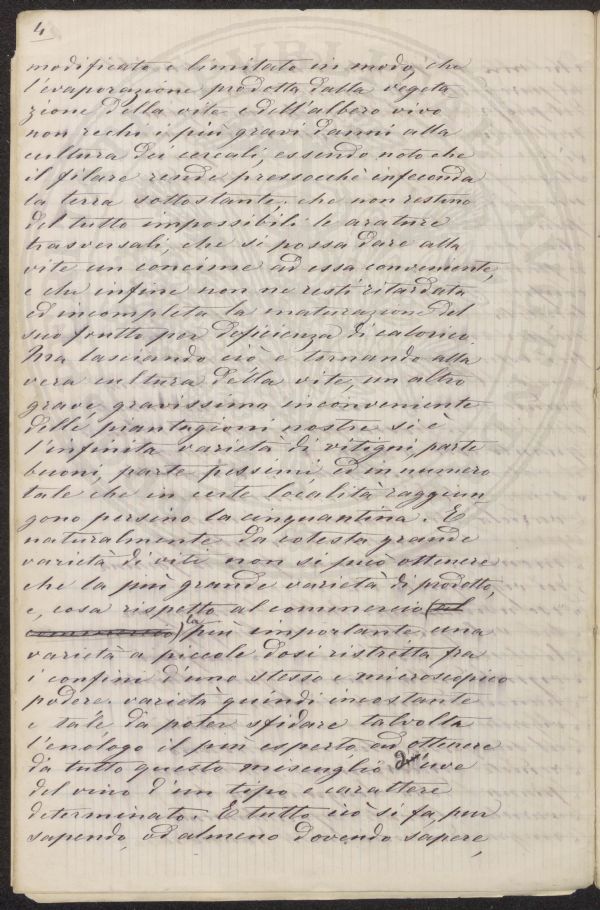 4
modificato e limitato in modo, che
l'evaporazione prodotta dalla vegeta-
zione della vite e dell'albero vivo
non rechi i più gravi danni alla
cultura dei cereali, essendo noto che
il filare rende pressocchè infeconda
la terra sottostante; che non restino
del tutto impossibili le arature
trasversali; che si possa dare alla
vite un concime ad essa conveniente,
e che infine non ne resti ritardata
ed incompleta la maturazione del
suo frutto per deficienza di calorico.
Ma lasciando ciò e tornando alla
vera cultura della vite, un altro
grave gravissimo inconveniente
delle piantagioni nostre si è
l'infinita varietà di vitigni, parte
buoni, parte pessimi ed in numero
tale che in certe località raggiun
gono persino la cinquantina. E
naturalmente da cotesta grande
varietà di viti non si può ottenere
che la più grande varietà di prodotto,
e, cosa rispetto al commercio (al
commercio) la più importante, una
varietà a piccole dosi ristretta fra
i confini d'uno stesso e microscopico
podere: varietà quindi incostante
e tale da poter sfidare talvolta
l'enòlogo il più esperto ad ottenere
da tutto questo miscuglio d'uve
del vino d'un tipo e carattere
determinato. E tutto ciò si fa, pur
sapendo, od almeno dovendo sapere,